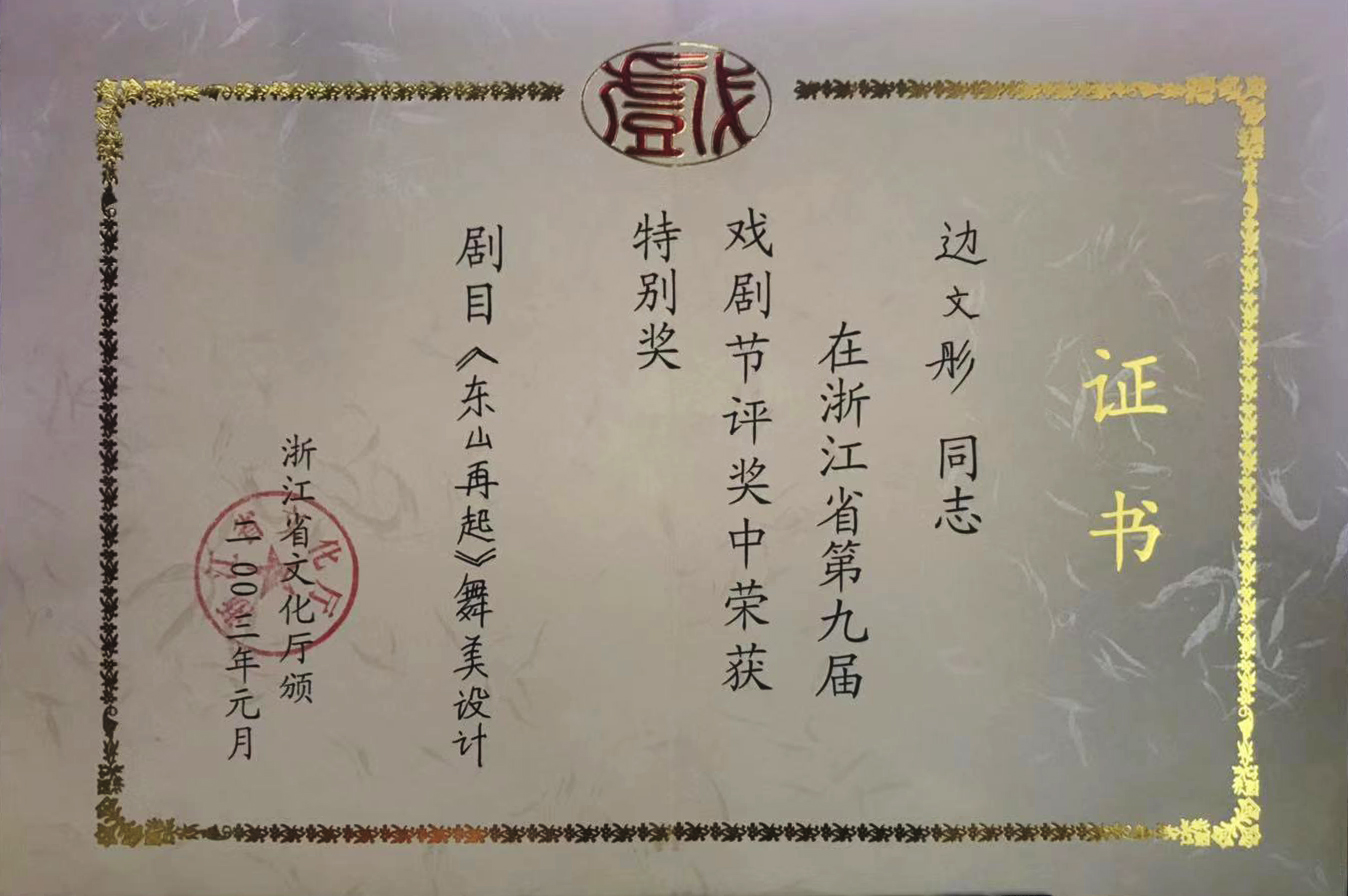 戲
证书
边文彤 同志
在浙江省第九届
戏剧节评奖中荣获
特别奖
剧目《东山再起》舞美设计
浙江省文化厅颁
二00三年元月
浙江省文化厅